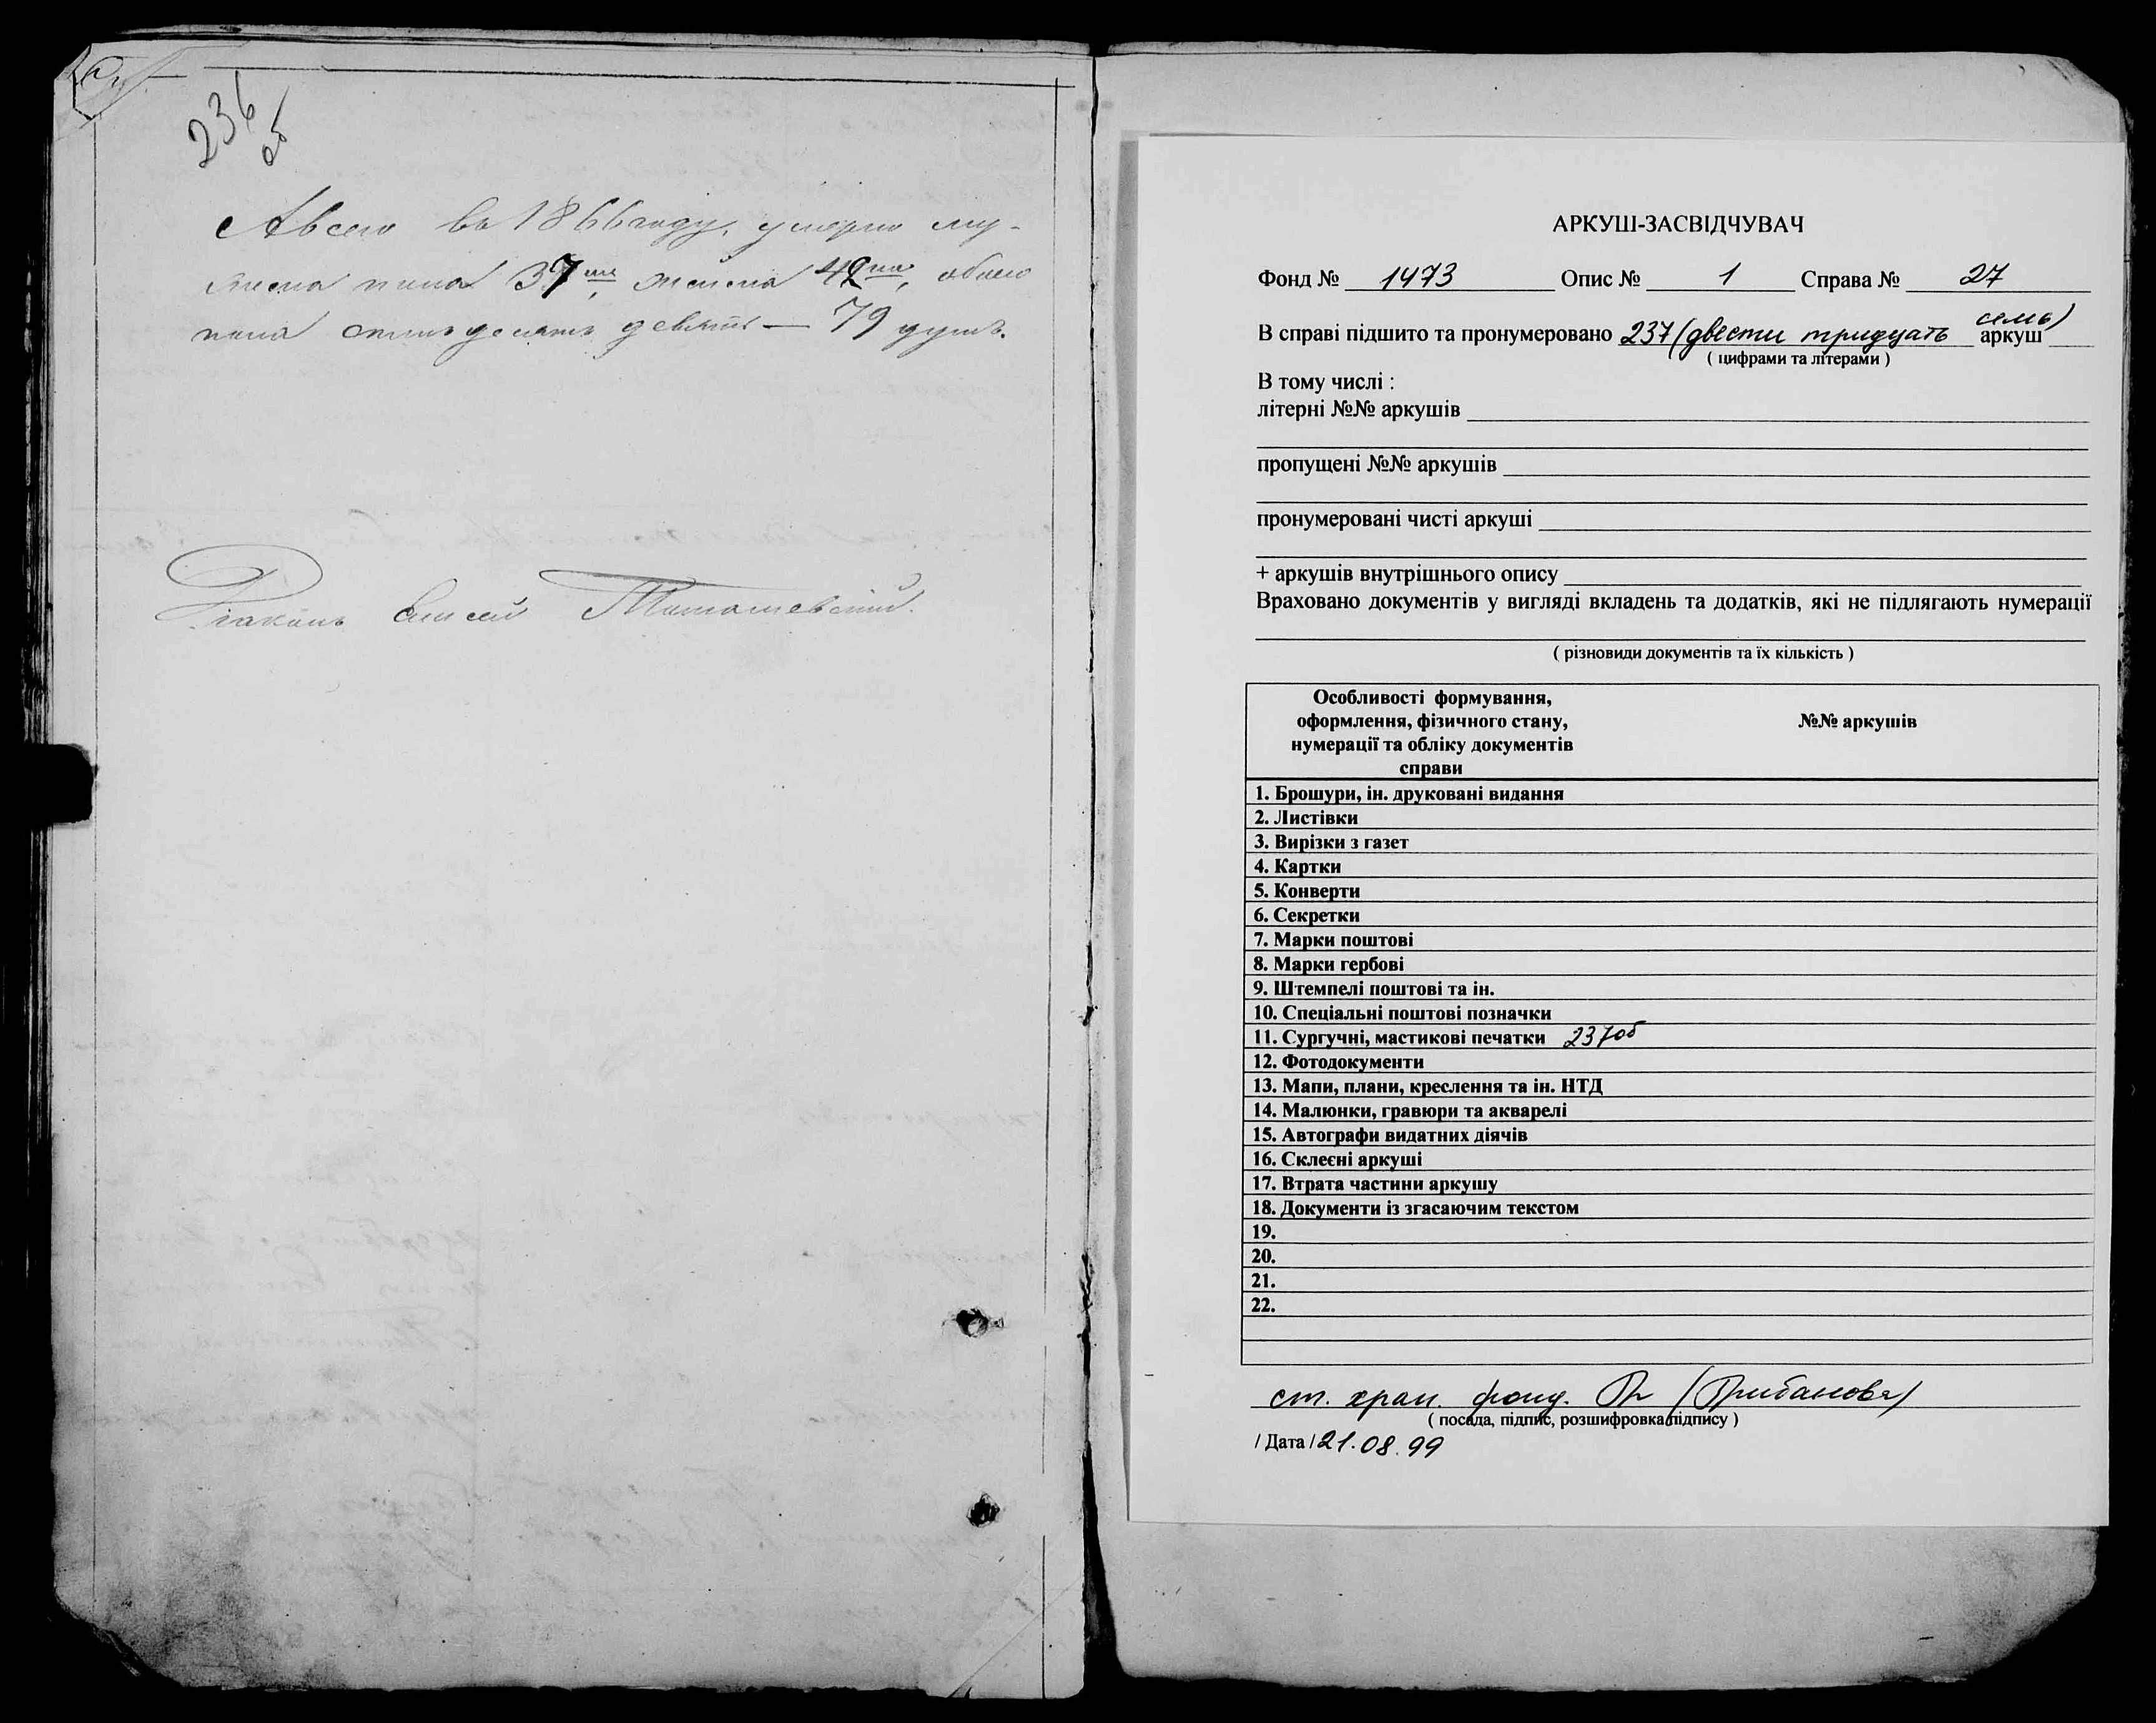 236
об
А всего въ 1866 году, умерло му-
жеска пола 37ми, женска 42ва, обоего
пола семьдесятъ девять — 79 душъ.
Діаконъ
АРКУШ-ЗАСВІДЧУВАЧ
Фонд № 1473 Опис № 1 Справа № 27
В справі підшито та пронумеровано 237 (двести тридцать семь) аркуш
( цифрами та літерами )
В тому числі :
літерні №№ аркушів
пропущені №№ аркушів
пронумеровані чисті аркуші
+ аркушів внутрішнього опису
Враховано документів у вигляді вкладень та додатків, які не підлягають нумерації
( різновиди документів та їх кількість )
Особливості формування,
оформлення, фізичного стану,
нумерації та обліку документів
справи
№№ аркушів
1. Брошури, ін. друковані видання
2. Листівки
3. Вирізки з газет
4. Картки
5. Конверти
6. Секретки
7. Марки поштові
8. Марки гербові
9. Штемпелі поштові та ін.
10. Спеціальні поштові позначки
11. Сургучні, мастикові печатки 237об
12. Фотодокументи
13. Мапи, плани, креслення та ін. НТД
14. Малюнки, гравюри та акварелі
15. Автографи видатних діячів
16. Склеєні аркуші
17. Втрата частини аркушу
18. Документи із згасаючим текстом
19.
20.
21.
22.
ст. хран. фонд.
( посада, підпис, розшифровка підпису )
/ Дата / 21.08.99